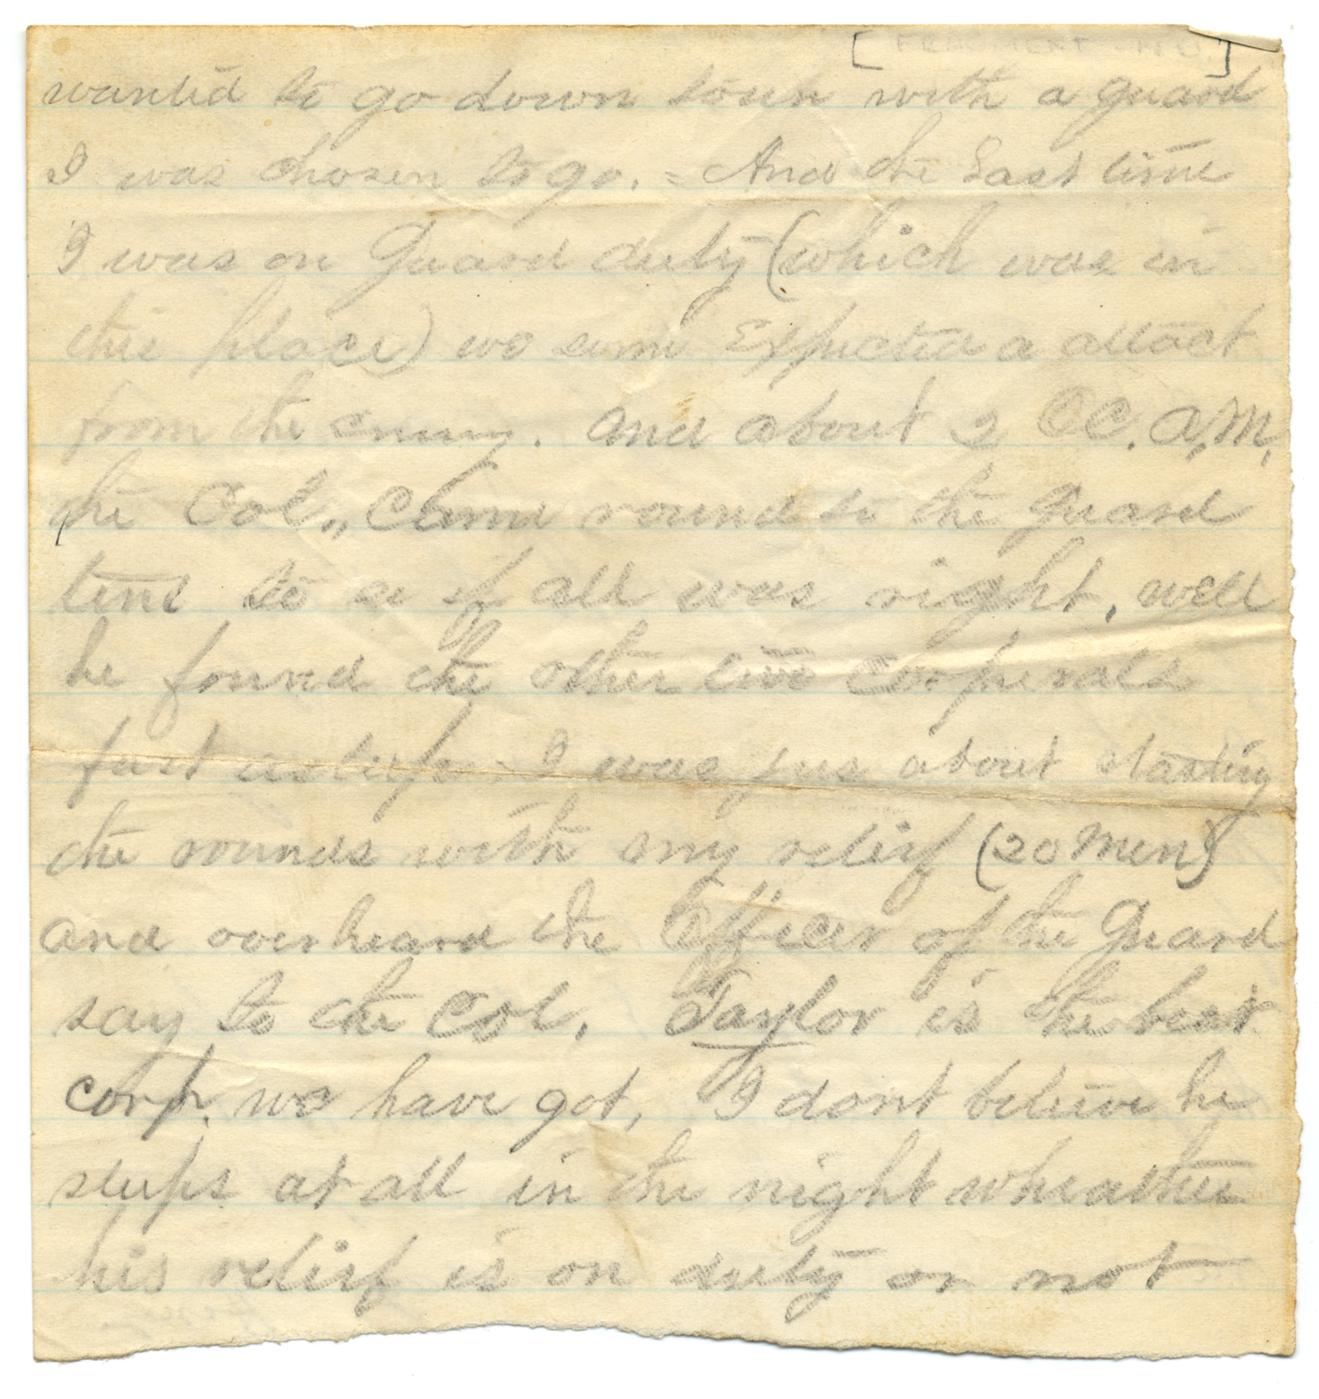 [FRAGMENT - ND]
wanted to go down town with a guard
I was chosen to go. = And the Last time
I was on Guard duty (which was in
this place) we some Expected a attact
from the enemy. and about 2 OC. A.M,
the Col,, Came round to the Guard
tent to se if all was right, well
he found the other two Corperals
fast asleep I was jus about starting
the rounds with my relief (20 men)
and overheard the Officer of the Guard
say to the Col, Taylor is the best
corp. we have got, I dont believe he
sleeps at all in the night wheather
his relief is on duty or not